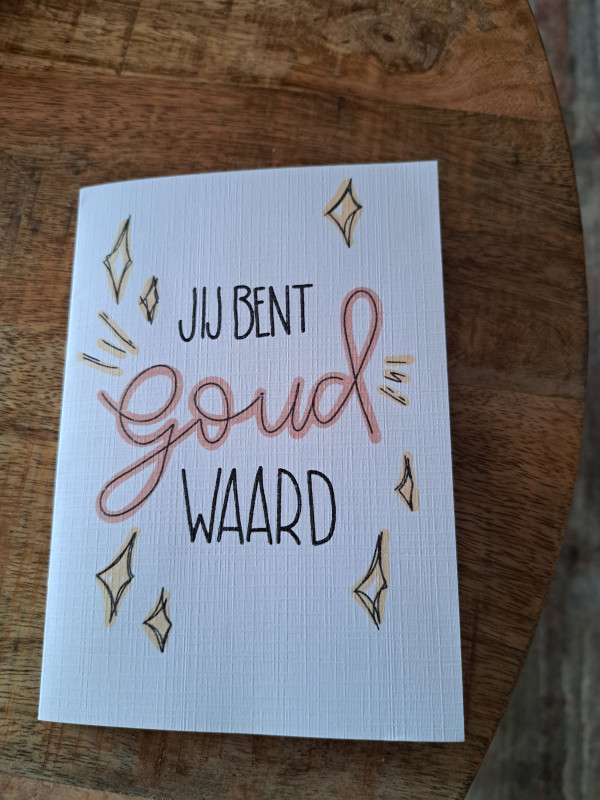 JIJ BENT
goud
WAARD